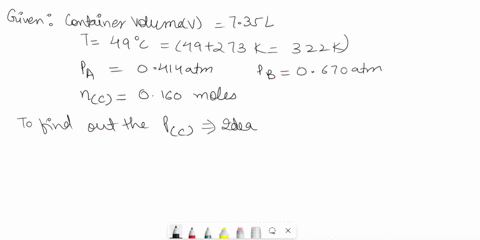 Given: Container Volume(V) = 7.35L
T = 49°C = (49+273 K = 322K)
PA = 0.414atm PB = 0.670atm
n(C) = 0.160 moles
To find out the P(C) ⇒